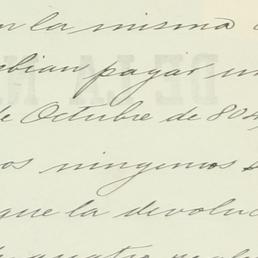 n la misma
bian pagar un
e Octubre de 80
os ningunos
que la devoluc